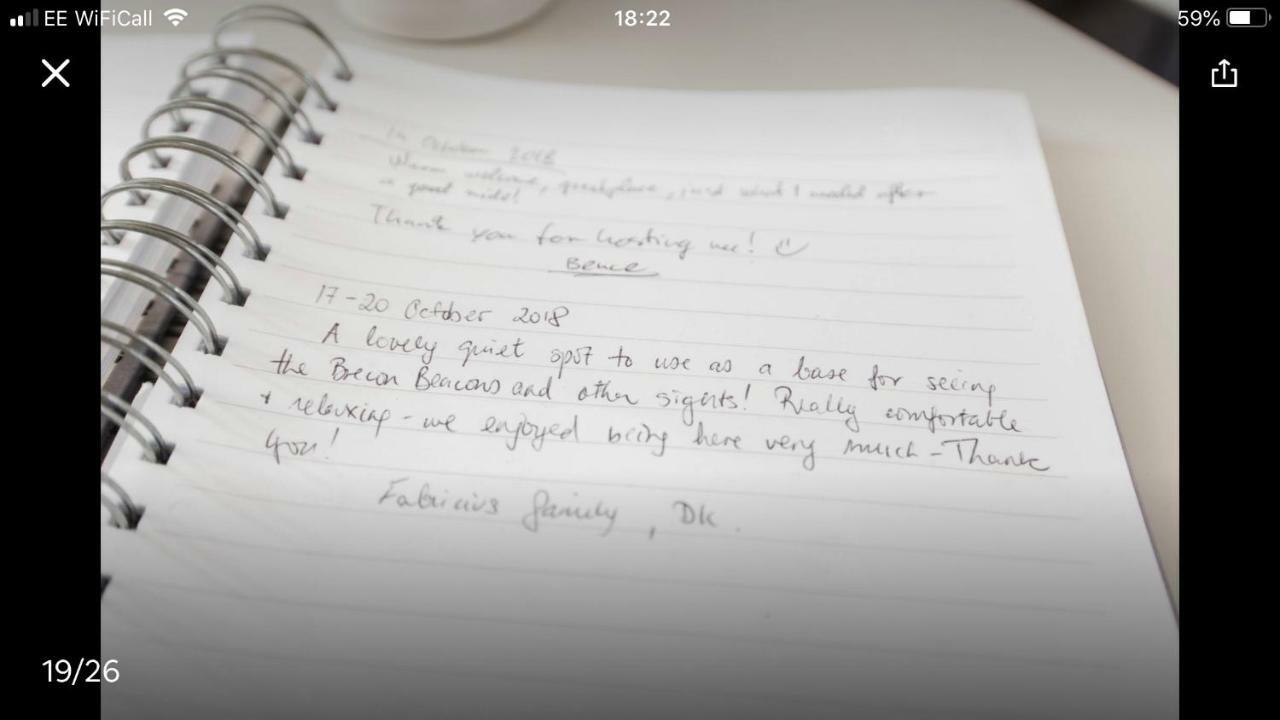 EE WiFiCall 18:22 59%
October 2018
Warm welcome, great place, just what I needed after
a good ride!
Thank you for hosting me!
Bence
17-20 October 2018
A lovely quiet spot to use as a base for seeing
the Brecon Beacons and other sights! Really comfortable
+ relaxing - we enjoyed being here very much - Thank
you!
Fabricius family, DK.
19/26